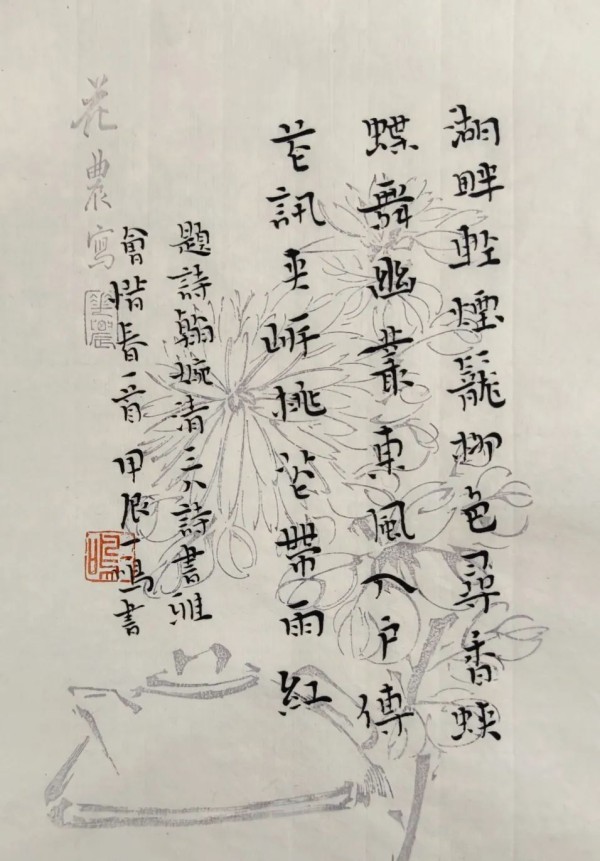 湖畔輕煙籠柳色尋香蛺
蝶舞幽叢東風入戶傳
花訊夾岸桃花帶雨紅
題詩翰婉清三人詩書雅
會惜春一首 甲辰一鳴書
花農寫